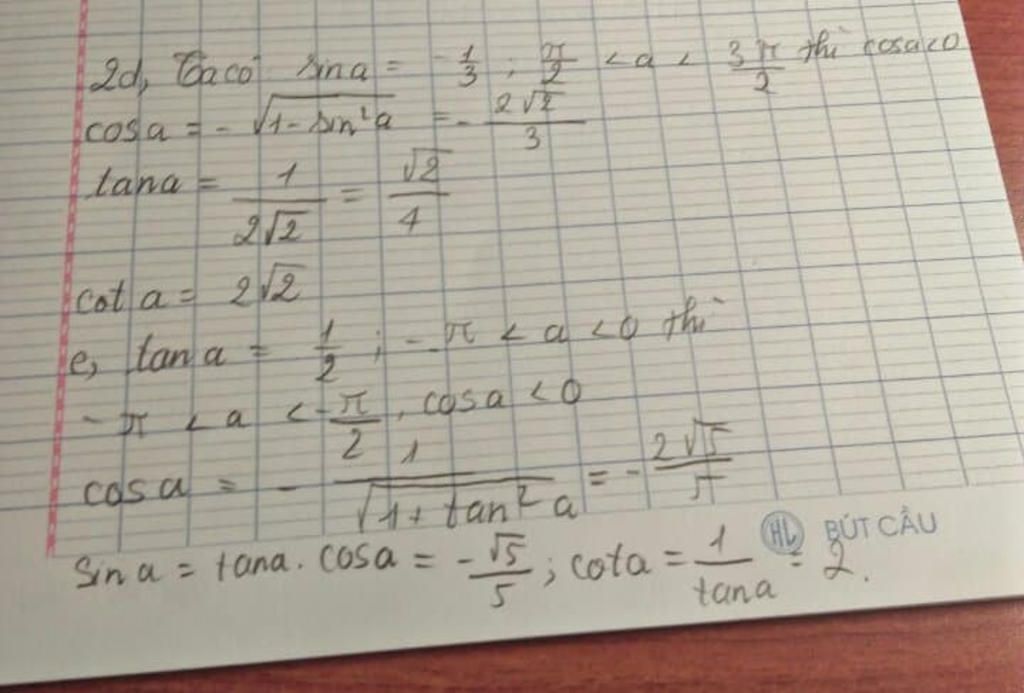 2d, Ta có sin a = -1/3 ; π/2 < a < 3π/2 thì cosa<0
cosa = -√(1-sin²a) = -2√2/3
tana = 1/(2√2) = √2/4
cot a = 2√2
e, tan a = 1/2 ; -π < a < 0 thì
-π < a < -π/2, cosa < 0
cosa = -1/√(1+tan²a) = -2√5/5
Sin a = tana. cosa = -√5/5 ; cota = 1/tana = 2.
HL BÚT CẦU